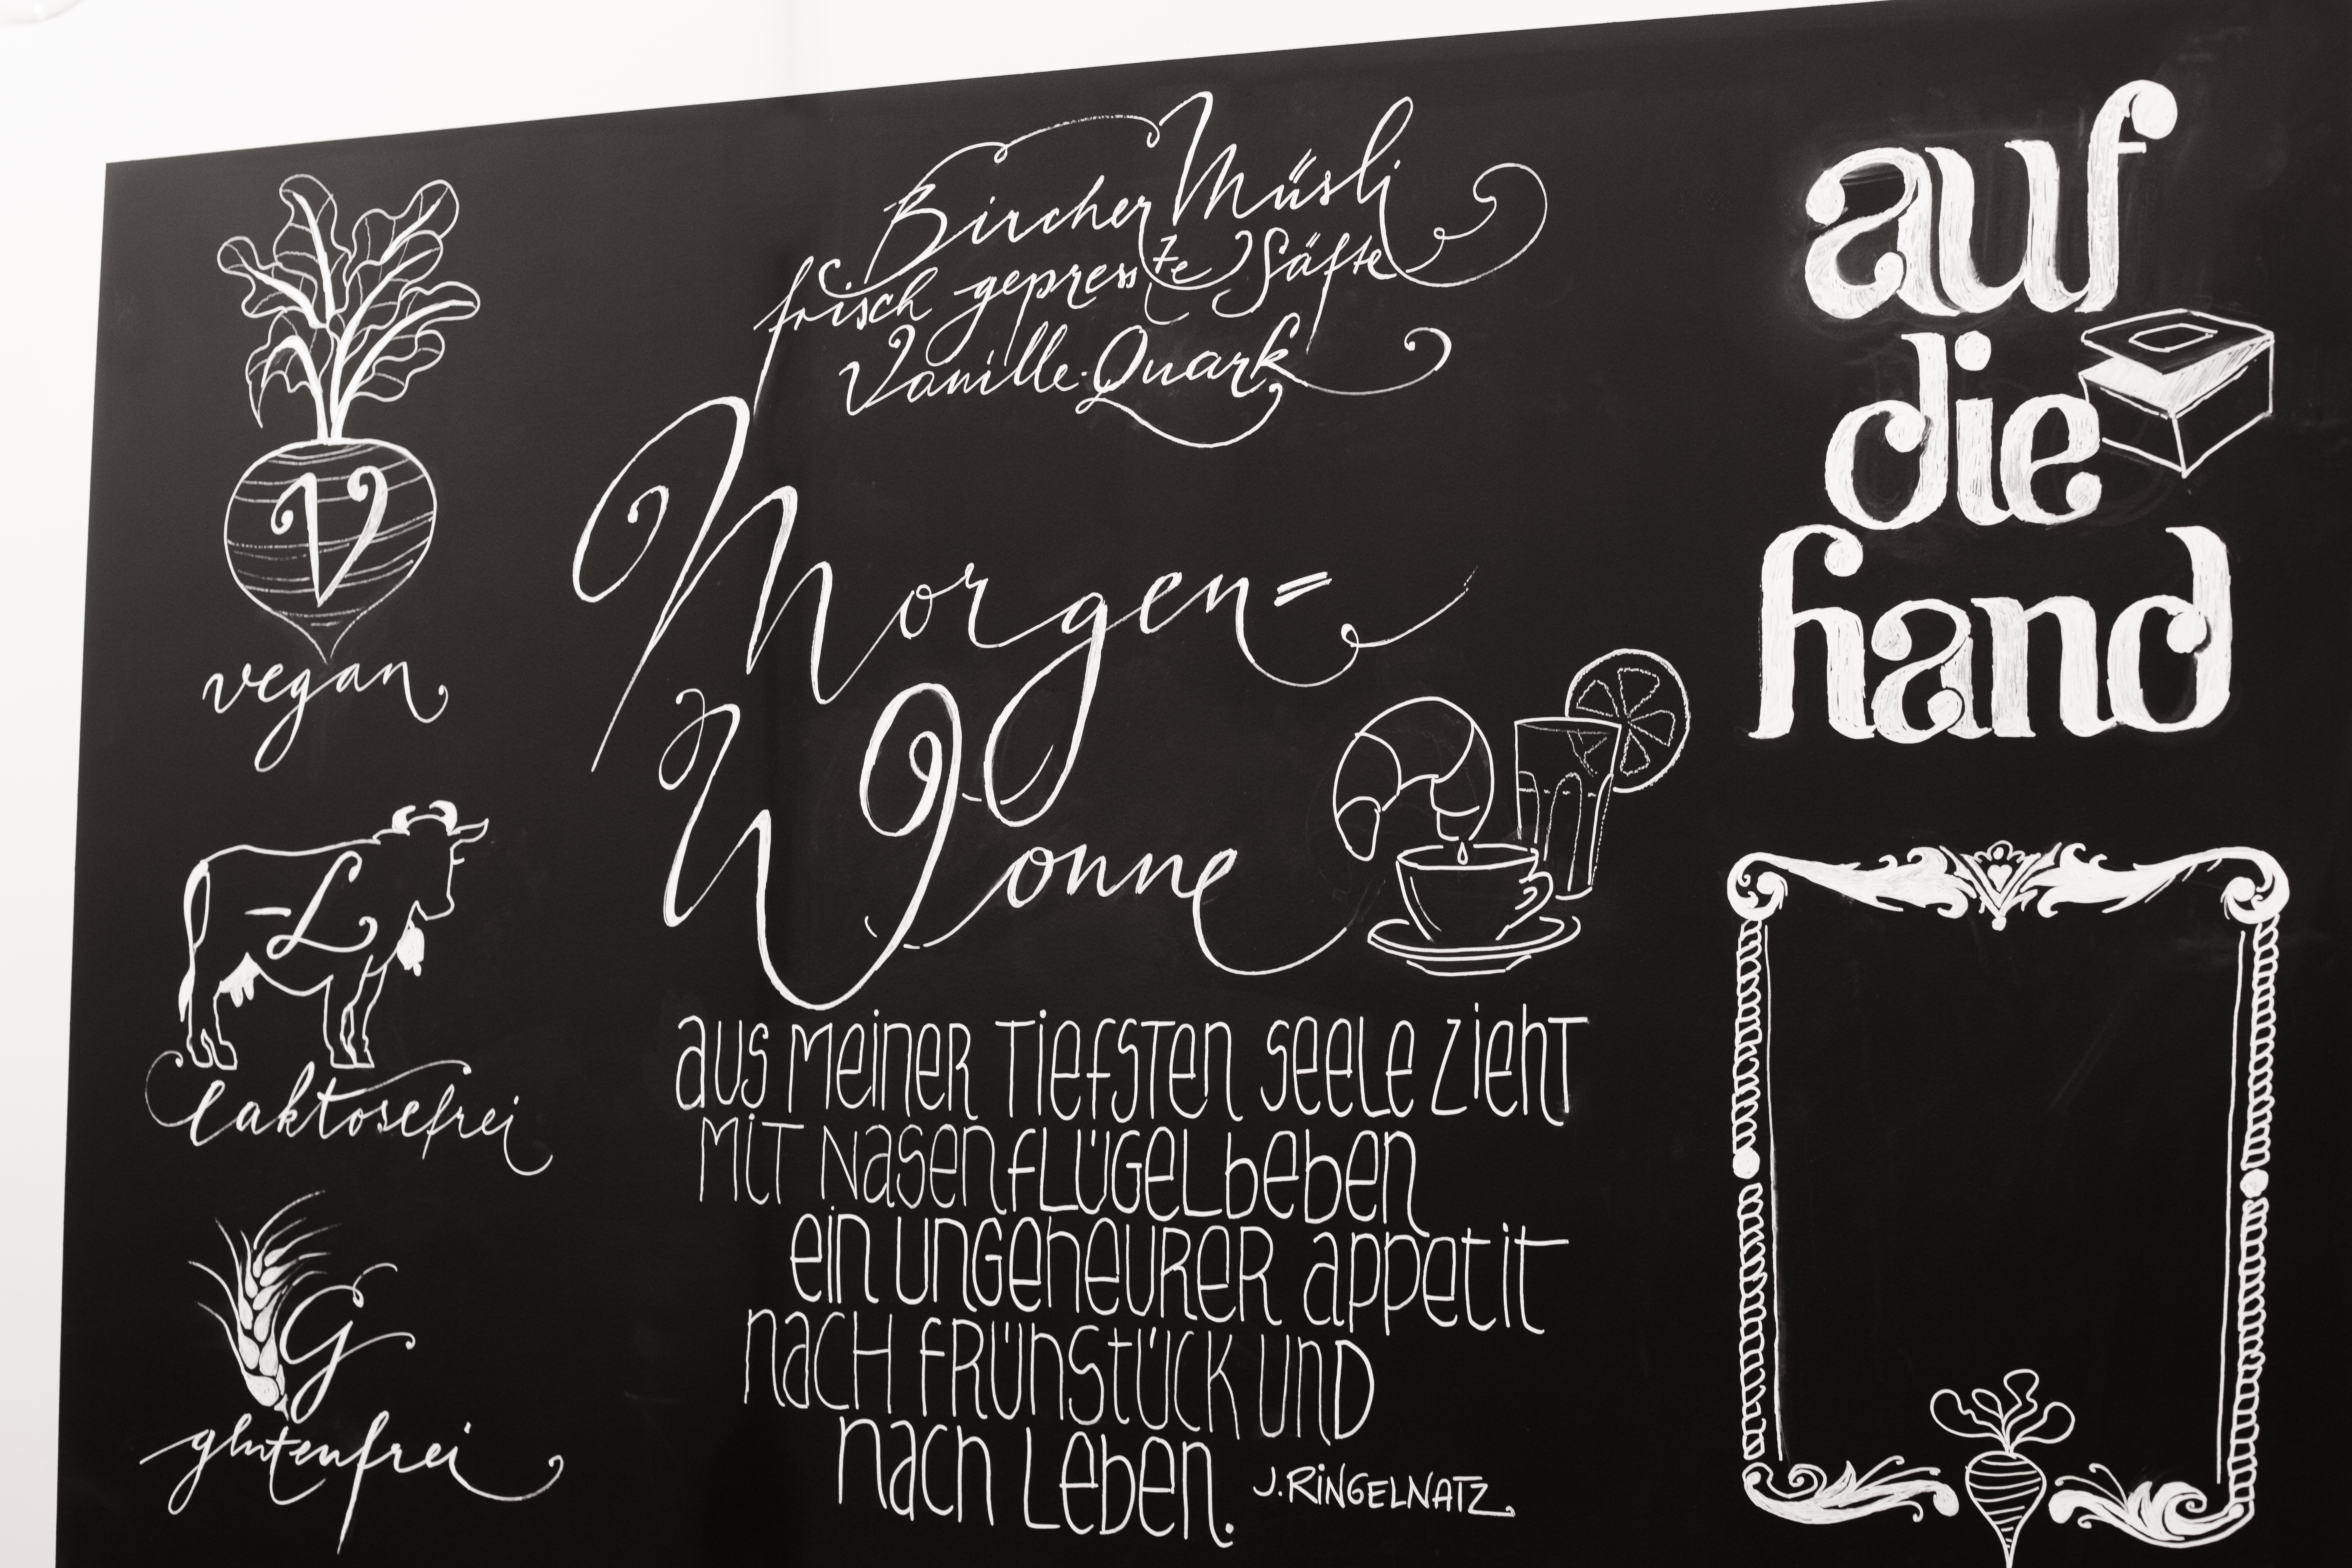 V
vegan
-L
laktosefrei
G
glutenfrei
Bircher Müsli
frisch gepresste Säfte
Vanille-Quark
Morgen=
Wonne
aus meiner tiefsten seele zieht
mit nasenflügelbeben
ein ungeheurer appetit
nach frühstück und
nach Leben. J. RINGELNATZ
auf
die
hand